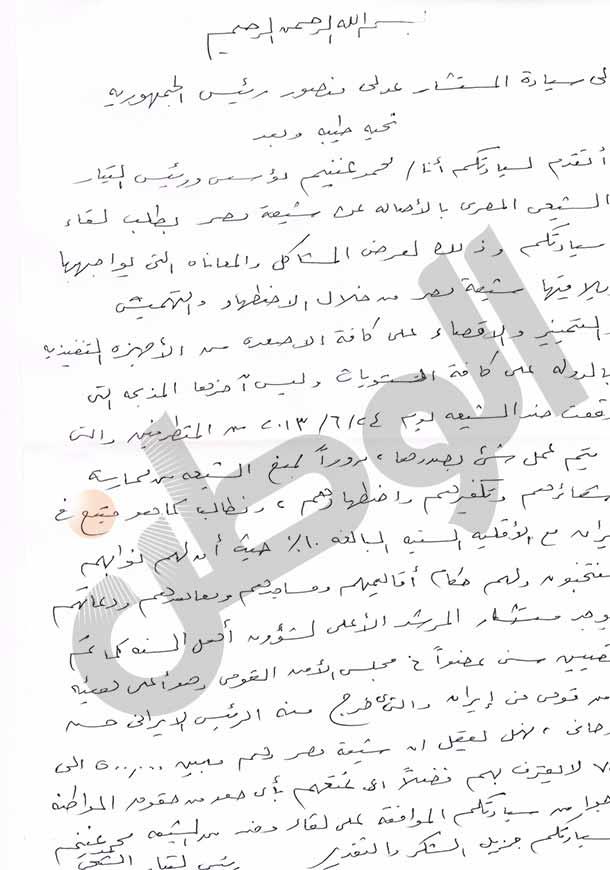 بسم الله الرحمن الرحيم
لى سيادة المستشار عدلى منصور رئيس الجمهوريه
تحيه طيبه وبعد
أتقدم لسيادتكم أنا/ محمد غنيم مؤسس ورئيس التيار
الشيعى المصرى بالأصاله عن شيعة مصر بطلب لقاء
سيادتكم وذلك لعرض المشاكل والمعاناه التى يواجهها
ويلاقيها شيعة مصر من خلال الاضطهاد والتهميش
والتمييز والاقصاء على كافة الاصعده من الأجهزه التنفيذيه
بالدوله على كافة المستويات وليس آخرها المذبحه التى
وقعت ضد الشيعه يوم ٢٠١٣/٦/٢٤ من المتطرفين والتى
يتم عمل شئ بصددها، مروراً بمنع الشيعه من ممارسة
شعائرهم وتكفيرهم واضطهادهم، ونطالب كما هو متبع فى
يران مع الأقليه السنيه البالغه ١٠٪ حيث أن لهم نوابهم
منتخبون ولهم حكام أقاليمهم ومساجدهم ومعاهدهم ودعاتهم
يوجد مستشار المرشد الأعلى لشؤون أهل السنه كما تم
تعيين سنى عضواً فى مجلس الأمن القومى وهو أعلى هيئه
من قومى فى إيران والتى خرج منه الرئيس الايرانى حسن
روحانى، فهل يعقل ان شيعة مصر وهم مابين ٥٠٠,٠٠٠ الى
لا يعترف بهم فضلاً اى تمتعهم بأى حق من حقوق المواطنه
رجوا من سيادتكم الموافقه على لقاء وفد من الشيعه محمد غنيم
سيادتكم جزيل الشكر والتقدير رئيس التيار الشيعى
الوطن